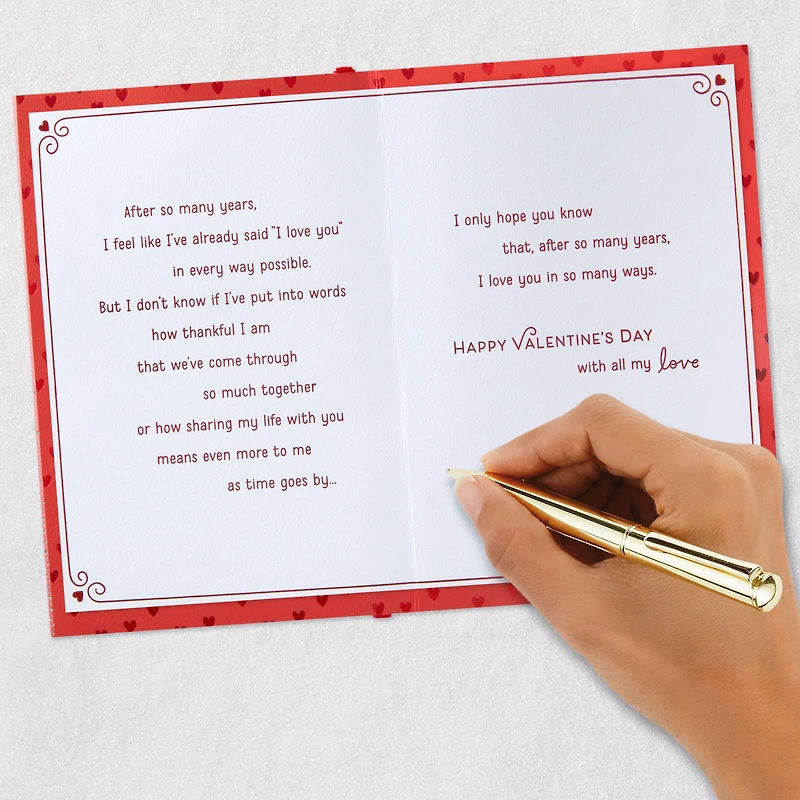 After so many years,
I feel like I've already said "I love you"
in every way possible.
But I don't know if I've put into words
how thankful I am
that we've come through
so much together
or how sharing my life with you
means even more to me
as time goes by...
I only hope you know
that, after so many years,
I love you in so many ways.
HAPPY VALENTINE'S DAY
with all my love